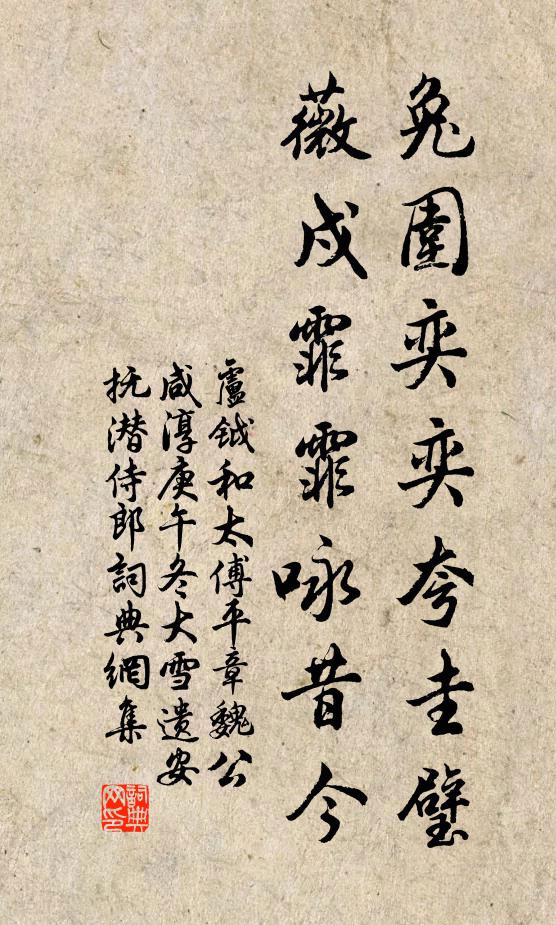 兔園奕奕夸圭璧
薇戍霏霏咏昔今
盧鉞和太傅平章魏公
咸淳庚午冬大雪遗安
抚潜侍郎詞典網集
詞典
网印